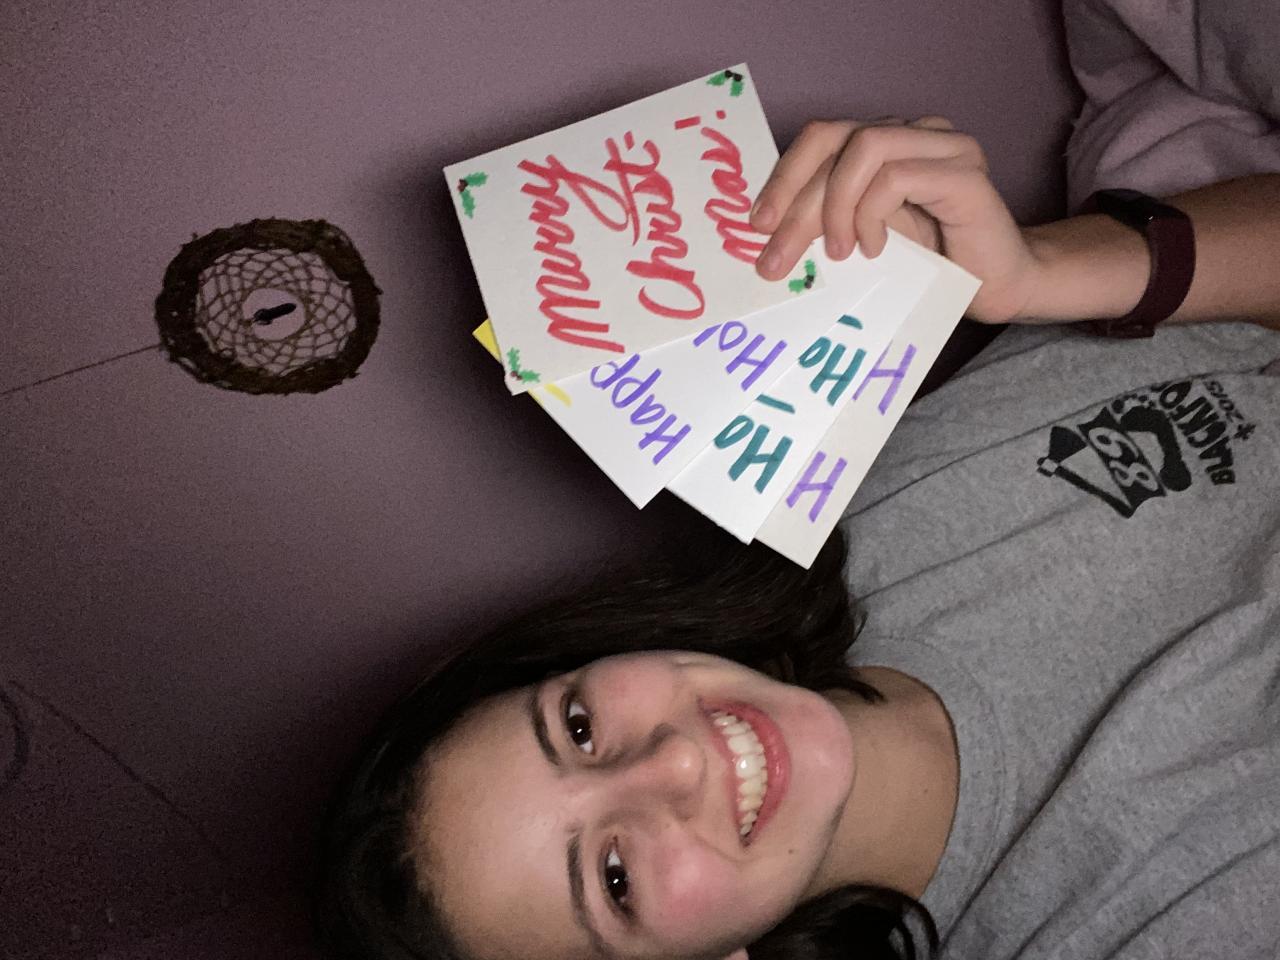 Merry
Christ-
mas!
Happ
Ho!
Ho-
Ho-
H
H
89
BLACKFO
*2015